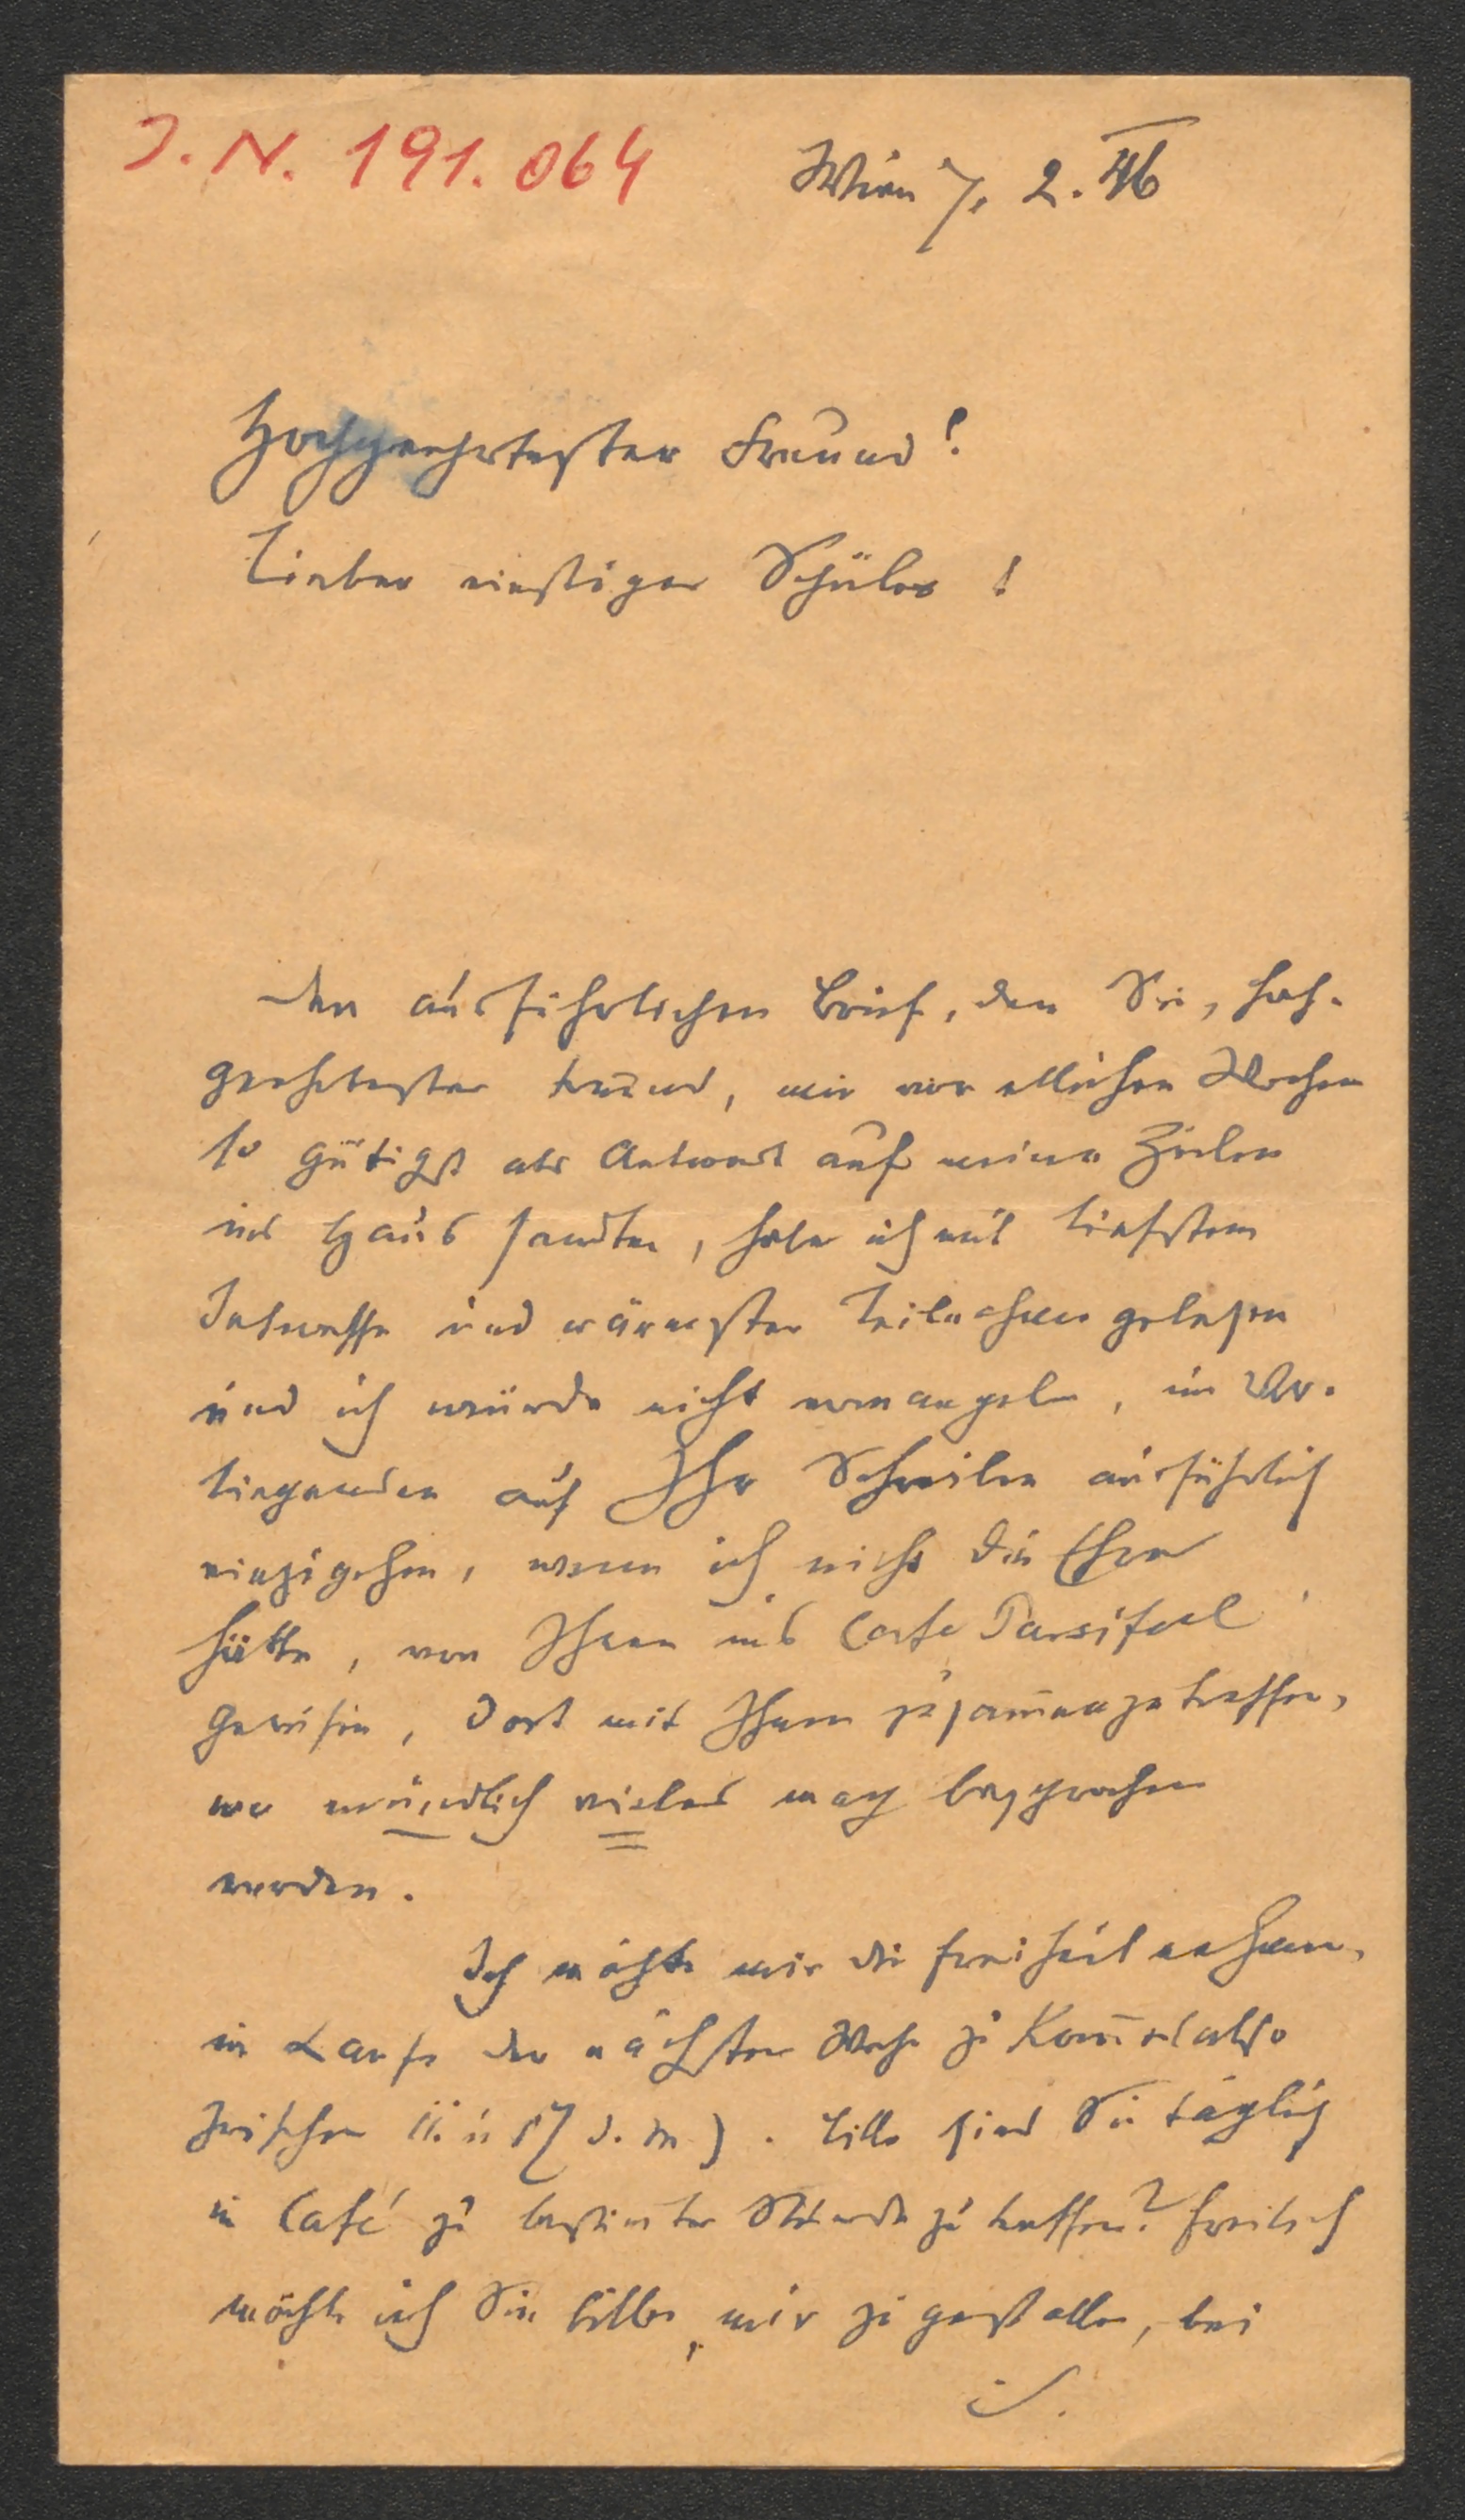 J. N. 191.064
Wien 7. 2. 46
Hochgeehrtester Freund!
Lieber einstiger Schüler!
Den ausführlichen Brief, den Sie, hoch-
geehrtester Freund, mir vor etlichen Wochen
so gütigst als Antwort auf meine Zeilen
ins Haus sandten, habe ich mit tiefstem
Interesse und wärmster Teilnahme gelesen
und ich würde nicht ermangeln, im Vor-
liegenden auf Ihr Schreiben ausführlich
einzugehen, wenn ich nicht die Ehre
hätte, von Ihnen ins Cafe Parsifal
gewiesen, dort mit Ihnen zusam̅enzutreffen,
wo mündlich vieles mag besprochen
werden.
Ich möchte mir die Freiheit nehmen,
im Laufe der nächsten Woche zu kom̅en (also
zwischen 11. u. 17 d. M). Bitte sind Sie täglich
im Café zu bestim̅ter Stunde zu treffen? Freilich
möchte ich Sie bitten, mir zu gestatten, bei